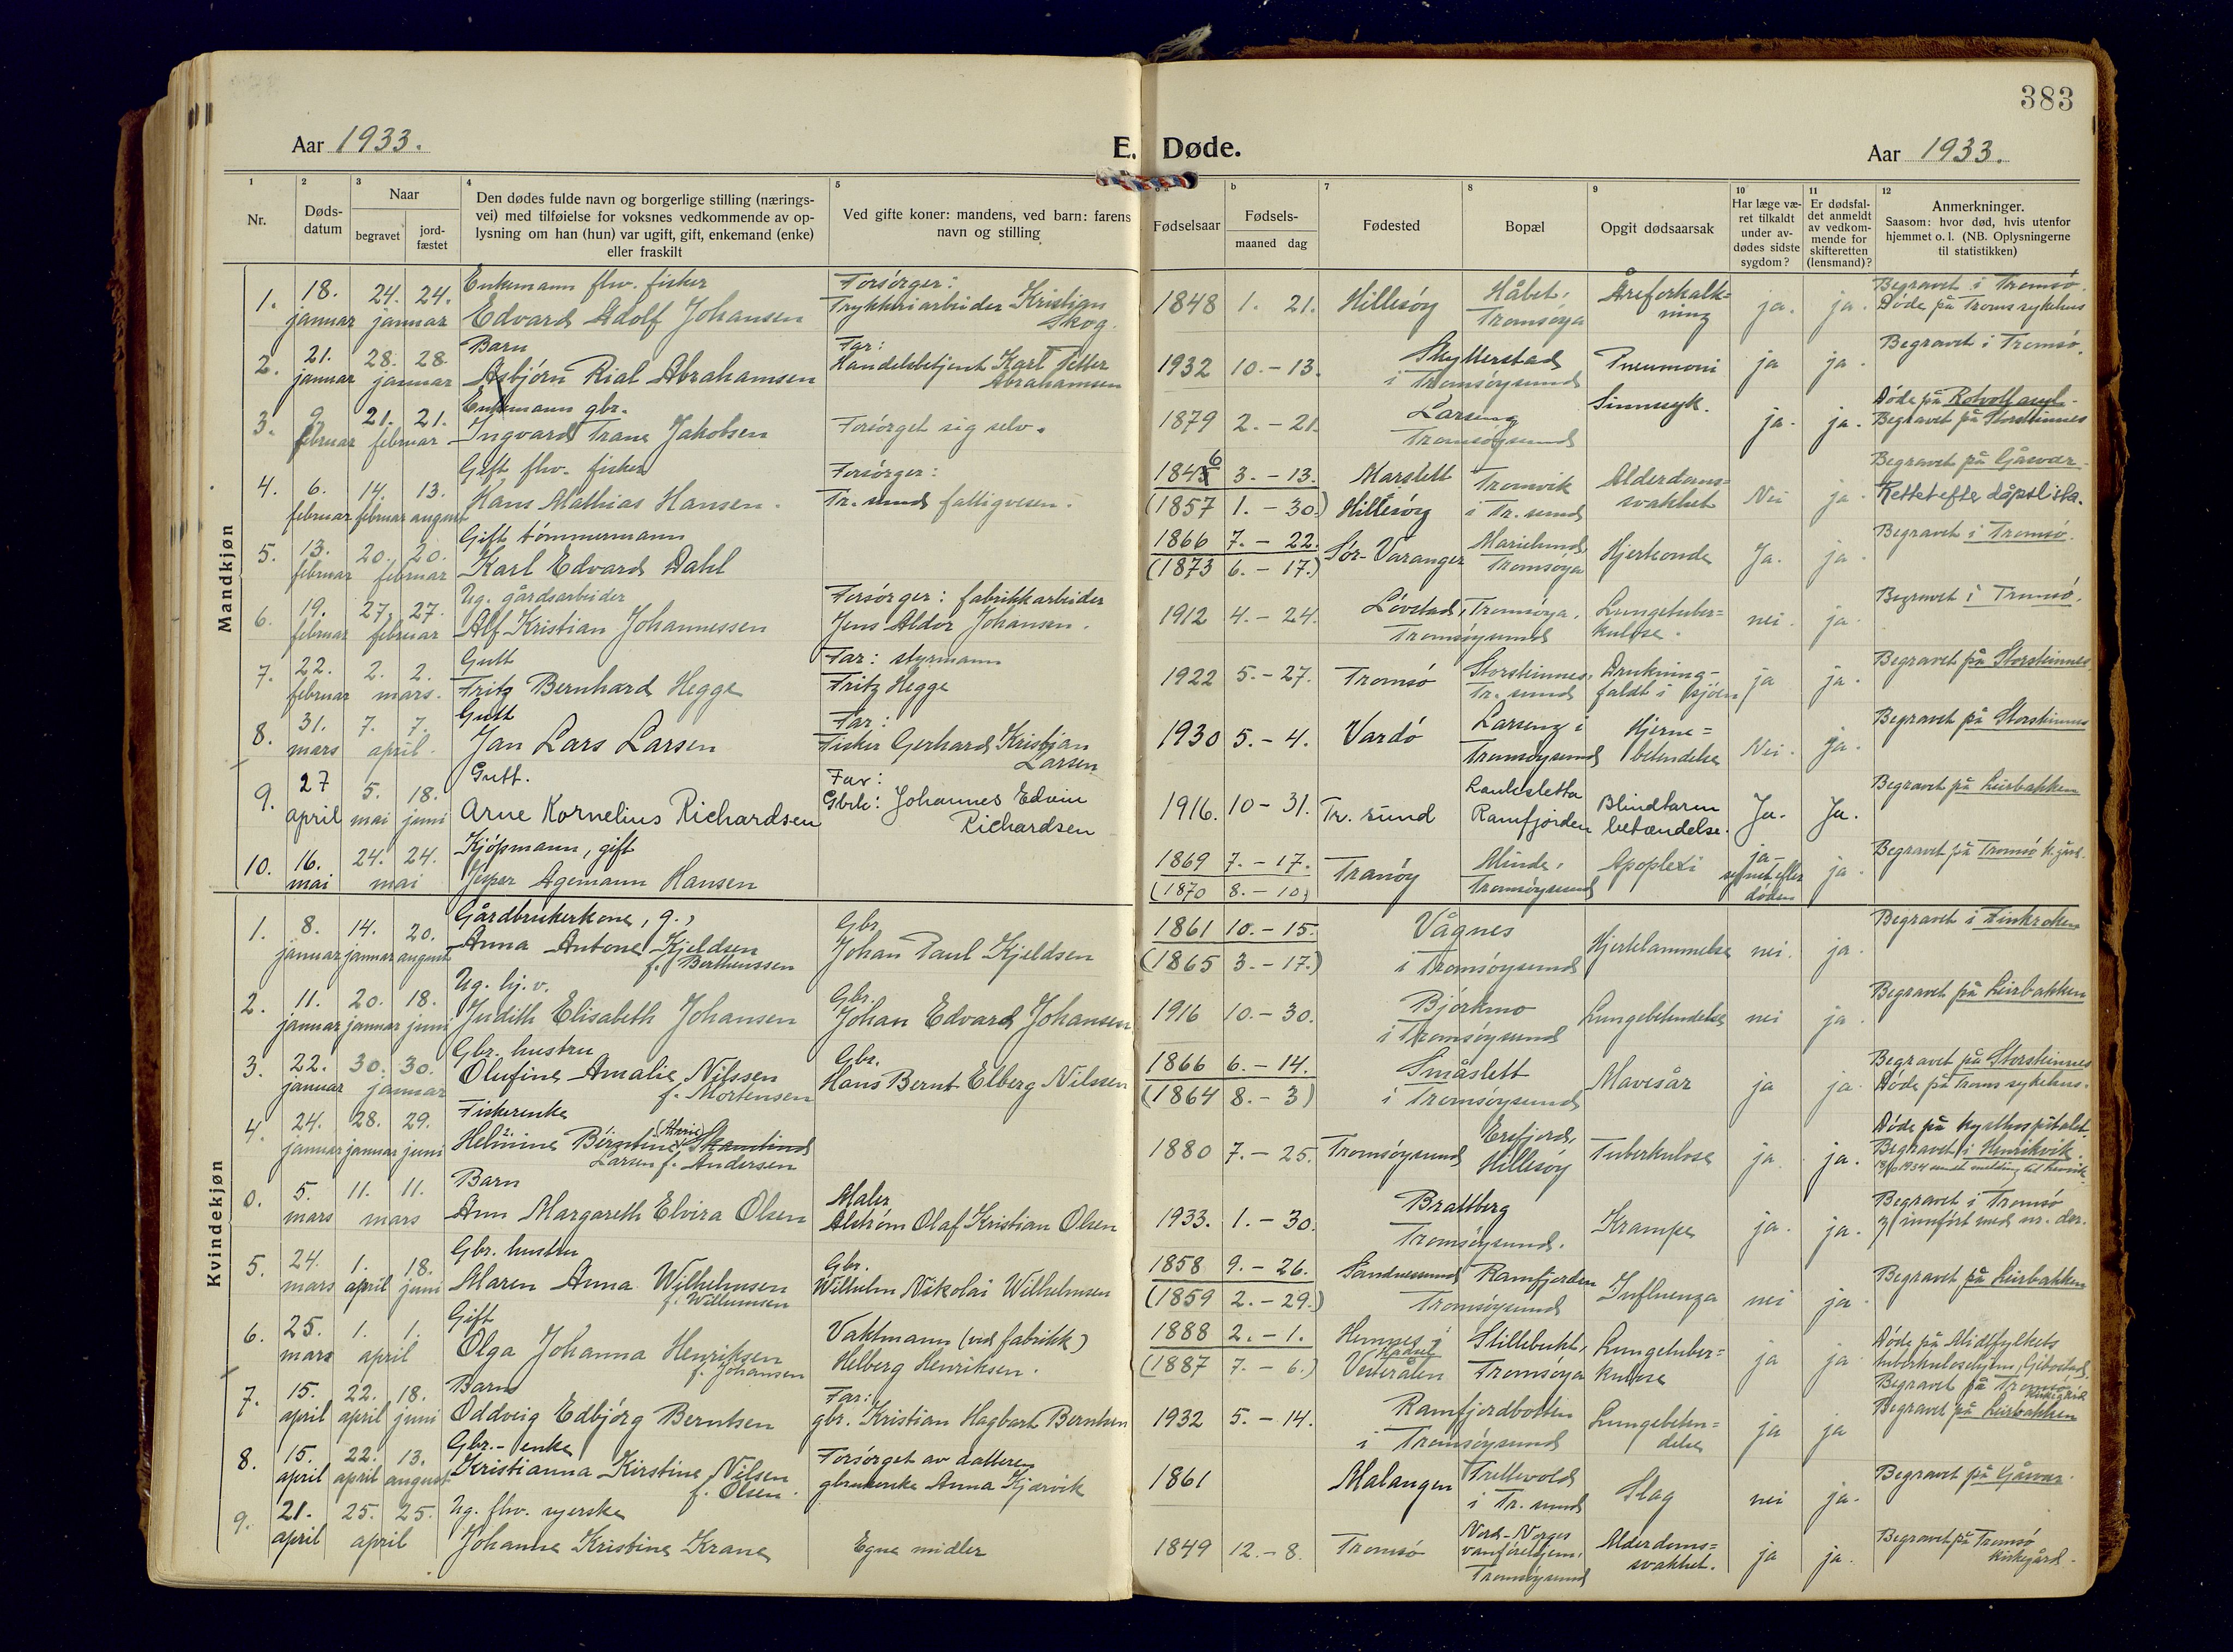 383
Aar 1933.
E. Døde.
Aar 1933.
1 Nr.
2 Døds-
datum
3 Naar
begravet
jord-
fæstet
4 Den dødes fulde navn og borgerlige stilling (nærings-
vei) med tilføielse for voksnes vedkommende av op-
lysning om han (hun) var ugift, gift, enkemand (enke)
eller fraskilt
5 Ved gifte koner: mandens, ved barn: farens
navn og stilling
Fødselsaar
b Fødsels-
maaned dag
7 Fødested
8 Bopæl
9 Opgit dødsaarsak
10 Har læge væ-
ret tilkaldt
under av-
dødes sidste
sygdom?
11 Er dødsfal-
det anmeldt
av vedkom-
mende for
skifteretten
(lensmand)?
12 Anmerkninger.
Saasom: hvor død, hvis utenfor
hjemmet o. l. (NB. Oplysningerne
til statistikken)
Mandkjøn
1. 18. januar 24. 24. januar
Enkemann fhv. fisker
Edvard Adolf Johansen
Forsørger:
Trykkeriarbeider Kristian
Skog.
1848 1. 21. Hillesøy
Håbet,
Tromsøya
Åreforkalk=
ning
ja. ja.
Begravet i Tromsø.
Døde på Troms sykehus
2. 21. januar 28. 28. januar
Barn
Asbjørn Rial Abrahamsen
Far:
Handelsbetjent Karl Petter
Abrahamsen
1932 10. - 13.
Skytterstad
i Tromsøysund
Pneumoni
ja ja.
Begravet i Tromsø.
3. 9. februar 21. 21. februar
Enkemann gbr.
Ingvard Trane Jakobsen
Forsørget sig selv.
1879 2. - 21.
Larseng
Tromsøysund
Sinnssyk.
ja. ja.
Døde på Rotvoll asyl.
Begravet på Storsteinnes
4. 6. februar 14. februar 13. august
Gift fhv. fisker
Hans Mathias Hansen.
Forsørger:
Tr. sund fattigvesen.
1846 3. - 13. Marslett
(1857 1. - 30.) Hillesøy
Tromvik
i Tr. sund
Alderdoms=
svakhet
Nei ja.
Begravet på Gåsvær.
Rettet efter dåpslista.
5. 13. februar 20. 20. februar
Gift tømmermann
Karl Edvard Dahl
1866 7. - 22.
(1873 6. - 17.)
Sør-Varanger
Marielund,
Tromsøya
Hjerteonde
Ja. ja
Begravet i Tromsø.
6. 19. februar 27. 27. februar
Ug. gårdsarbeider
Alf Kristian Johannessen
Forsørger: fabrikkarbeider
Jens Aldor Johansen.
1912 4. - 24.
Løvstad, Tromsøya.
Tromsøysund
Lungetuber=
kulose.
nei. ja.
Begravet i Tromsø.
7. 22. februar 2. 2. mars.
Gutt
Fritz Bernhard Hegge
Far: styrmann
Fritz Hegge
1922 5. - 27. Tromsø
Storsteinnes,
Tr. sund
Drukning-
faldt i sjøen
ja ja.
Begravet på Storsteinnes
8. 31. mars 7. 7. april.
Gutt
Jan Lars Larsen
Far:
Fisker Gerhard Kristian
Larsen
1930 5. - 4. Vardø
Larseng i
Tromsøysund
Hjerne=
betendelse
Nei. ja.
Begravet på Storsteinnes
9. 27 april 5. mai 18. juni
Gutt.
Arne Kornelius Richardsen
Far:
Gbrk: Johannes Edvin
Richardsen
1916. 10 - 31. Tr. sund
Laukslætta
Ramfjorden
Blindtarm
betændelse.
Ja. Ja.
Begravet på Leirbakken
10. 16. mai 24. 24. mai
Kjøpmann, gift
Jesper Agemann Hansen
1869 7. - 17.
(1870 8. - 10.)
Tranøy
Minde,
Tromsøysund
Apoplexi
ja-
synet efter
døden
ja.
Begravet på Tromsø k.gård.
Kvindekjøn
1. 8. januar 14. januar 20. august
Gårdbrukerkone, g.,
Anna Antone Kjeldsen
f. Berthenssen
Gbr.
Johan Paul Kjeldsen
1861 10. - 15.
(1865 3. - 17.)
Vågnes
i Tromsøysund
Hjertelammelse
nei. ja.
Begravet i Finkroken
2. 11. januar 20. januar 18. juni
Ug. hj. v.
Judith Elisabeth Johansen
Gbr.
Johan Edvard Johansen
1916 10. - 30.
Bjørkmo
i Tromsøysund
Lungebetendelse
nei ja.
Begravet på Leirbakken
3. 22. januar 30. 30. januar
Gbr. hustru
Olufine Amalie Nilssen
f. Mortensen
Gbr.
Hans Bernt Elberg Nilssen
1866 6. - 14.
(1864 8. - 3)
Småslett
i Tromsøysund
Mavesår
ja ja.
Begravet på Storsteinnes
Døde på Troms sykehus.
4. 24. januar 28. januar 29. juni
Fiskerenke
Helmine Berntine
Larsen f. Andersen
1880 7. - 25. Tromsøysund
Ersfjord,
Hillesøy
Tuberkulose
ja ja.
Døde på kysthospitalet.
Begravet i Henrikvik.
0. 5. mars 11. 11. mars
Barn
Ann Margareth Elvira Olsen
Maler
Alstrøm Olaf Kristian Olsen
1933. 1. - 30.
Brattberg
Tromsøysund.
Krampe
ja. ja.
Begravet i Tromsø
og innført med nr. der.
5. 24. mars 1. april 18. juni
Gbr. hustru
Maren Anna Wilhelmsen
f. Willumsen
Gbr.
Wilhelm Nikolai Wilhelmsen
1858 9. - 26.
(1859 2. - 29.)
Sandnessund
Ramfjorden
Tromsøysund
Influenza
nei ja.
Begravet på Leirbakken
6. 25. mars 1. 1. april
Gift
Olga Johanna Henriksen
f. Johansen
Vaktmann (ved fabrikk)
Helberg Henriksen.
1888 2. - 1.
(1887 7. - 6.)
Hennes i
Hadsel
Vesterålen
Stillebukt,
Tromsøya
Lungetuber=
kulose
ja ja.
Døde på Midtfylkets
tuberkulosehjem, Gibostad.
Begravet på Tromsø
kirkegård
7. 15. april 22. april 18. juni
Barn
Oddveig Edbjørg Berntsen
Far:
gbr. Kristian Hagbart Berntsen
1932 5. - 14.
Ramfjordbotten
i Tromsøysund
Lungebeten=
delse
ja ja
Begravet på Leirbakken
8. 15. april 22. april 13. august
Gbr.- enke
Kristianna Kirstine Nilsen
f. Olsen.
Forsørget av datteren
gbrukerske Anna Kjærvik
1861 Malangen
Trettevold
i Tr. sund
Slag
nei ja.
Begravet på Gåsvær.
9. 21. april 25. 25. april
Ug. fhv. syerske
Johanne Kristine Krane
Egne midler
1849 12. - 8. Tromsø
Nord-Norges
vanførehjem,
Tromsøysund
Alderdoms=
svakhet.
ja ja.
Begravet på Tromsø
kirkegård.